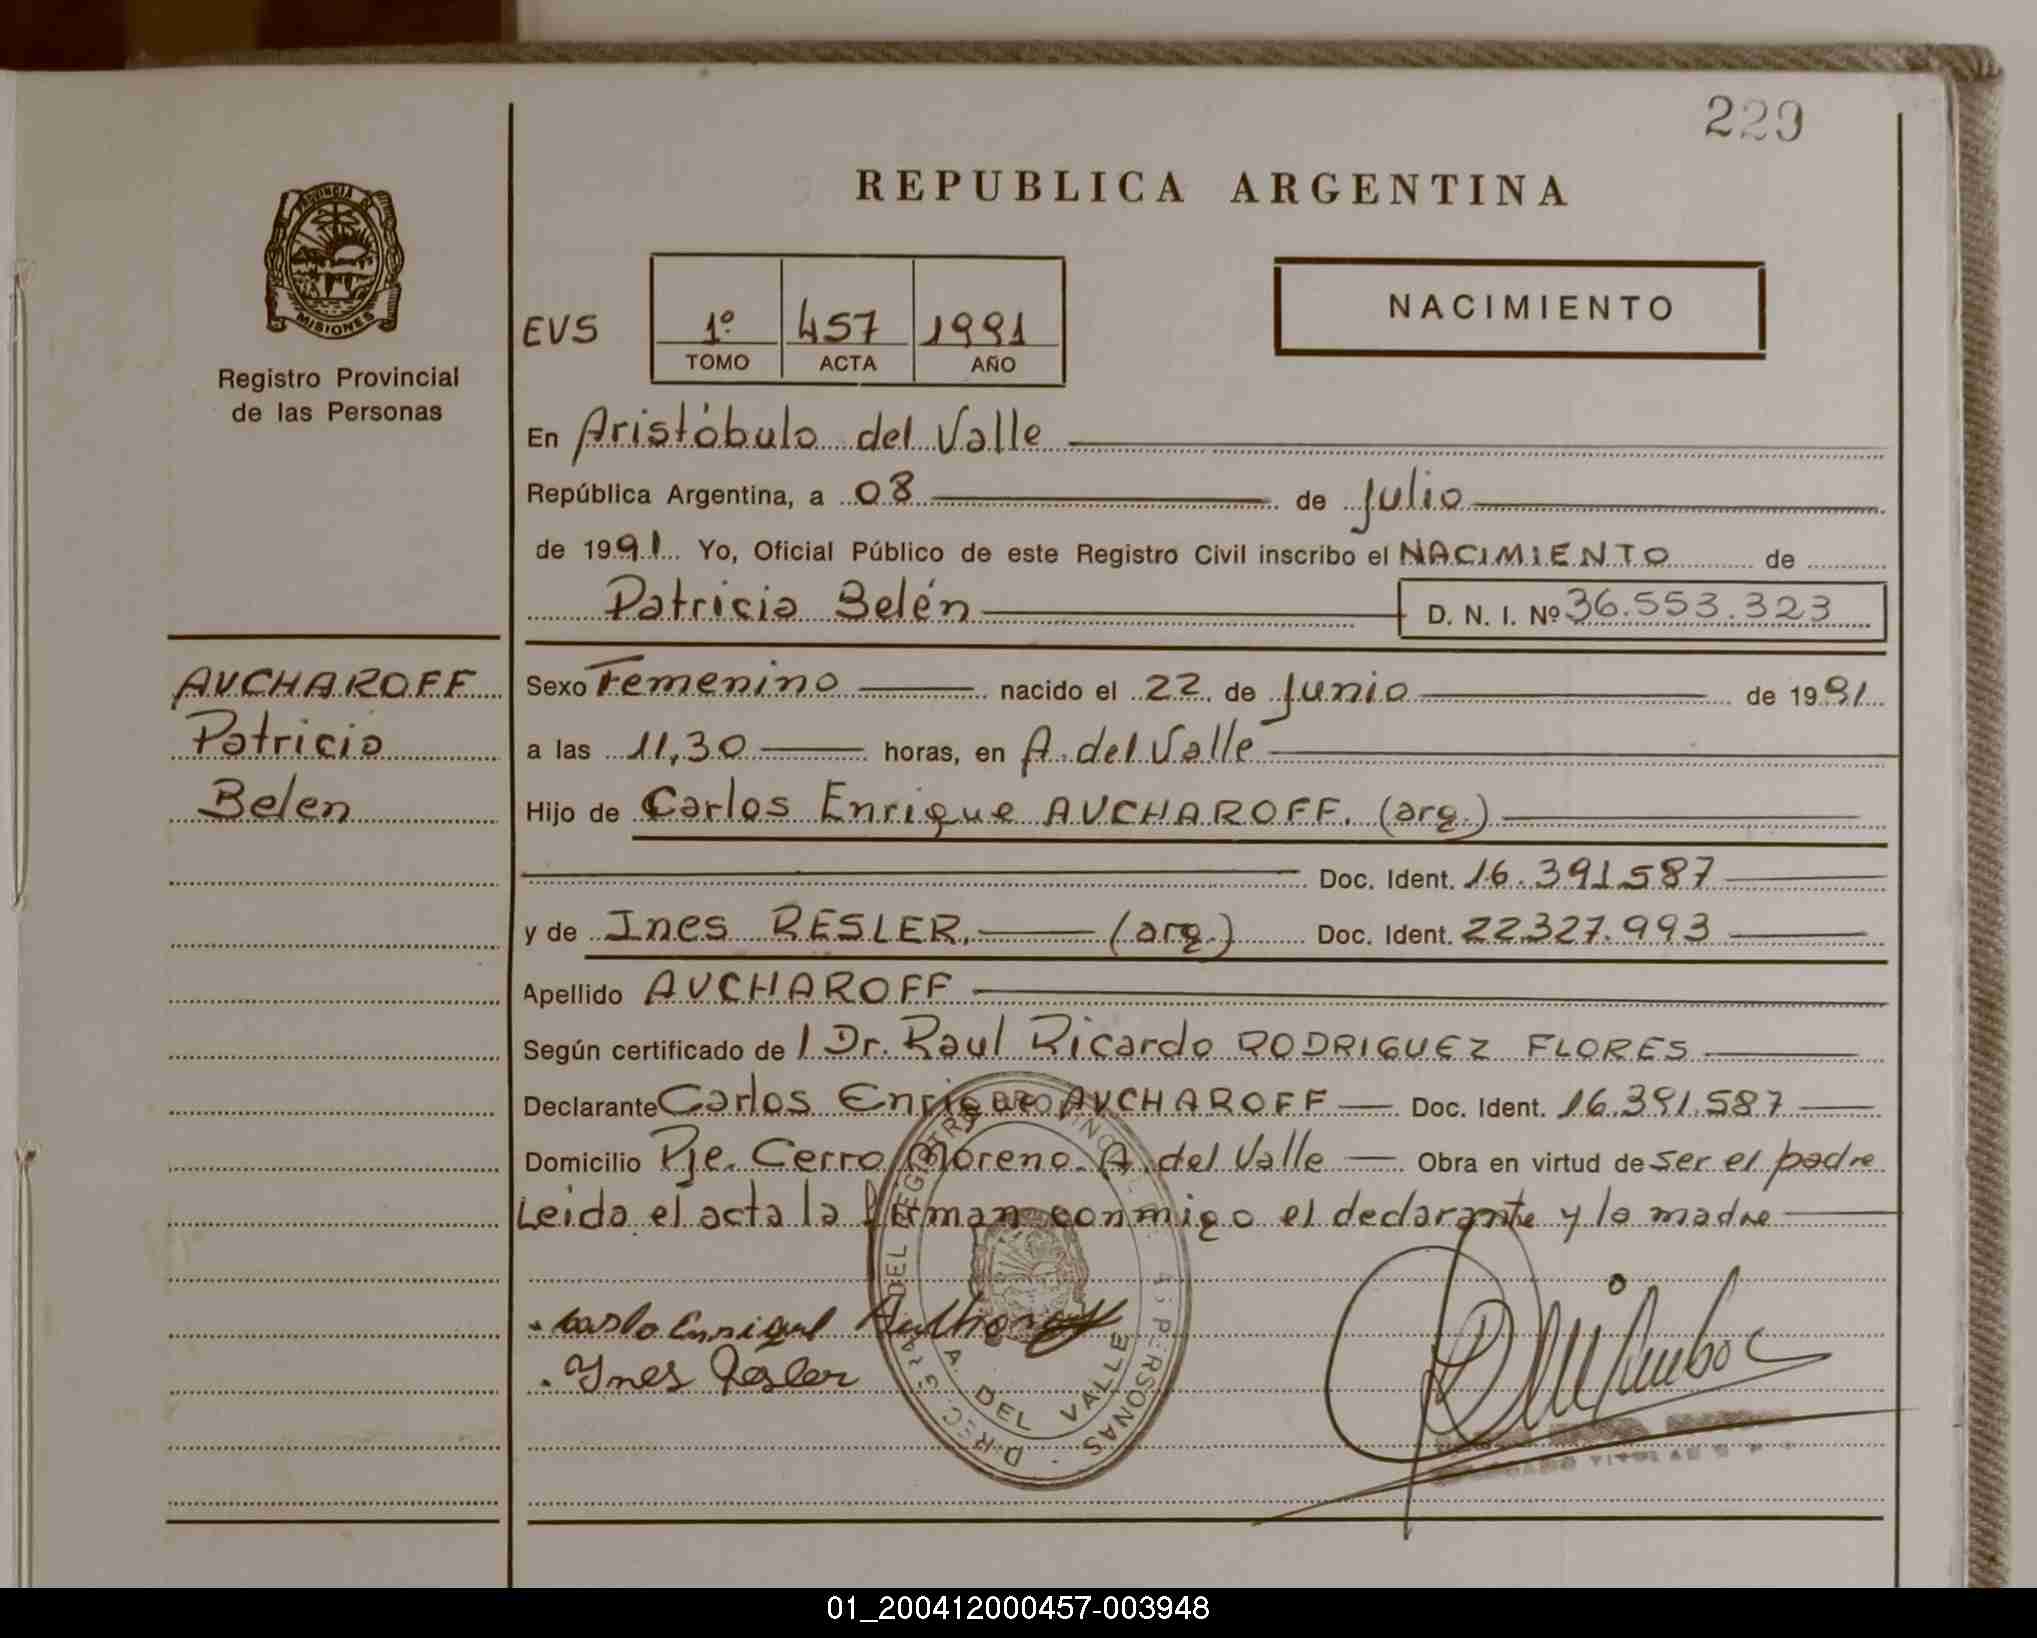 229
REPUBLICA ARGENTINA
PROVINCIA DE
MISIONES
Registro Provincial
de las Personas
EVS
1º 457 1991
TOMO ACTA AÑO
NACIMIENTO
En Aristóbulo del Valle
República Argentina, a 08 de Julio
de 1991 Yo, Oficial Público de este Registro Civil inscribo el NACIMIENTO de
Patricia Belén D. N. I. Nº 36.553.323
AUCHAROFF
Patricia
Belen
Sexo Femenino nacido el 22 de Junio de 1991
a las 11,30 horas, en A. del Valle
Hijo de Carlos Enrique AUCHAROFF. (arg.)
Doc. Ident. 16.391.587
y de Ines RESLER. (arg.) Doc. Ident. 22327.993
Apellido AUCHAROFF
Según certificado de l Dr. Raul Ricardo RODRIGUEZ FLORES
Declarante Carlos Enrique AUCHAROFF Doc. Ident. 16.391.587
Domicilio Pje. Cerro Moreno. A. del Valle Obra en virtud de ser el padre
Leida el acta la firman conmigo el declarante y la madre
Carlo Enrique
Ines Resler
A. DEL VALLE
01_200412000457-003948